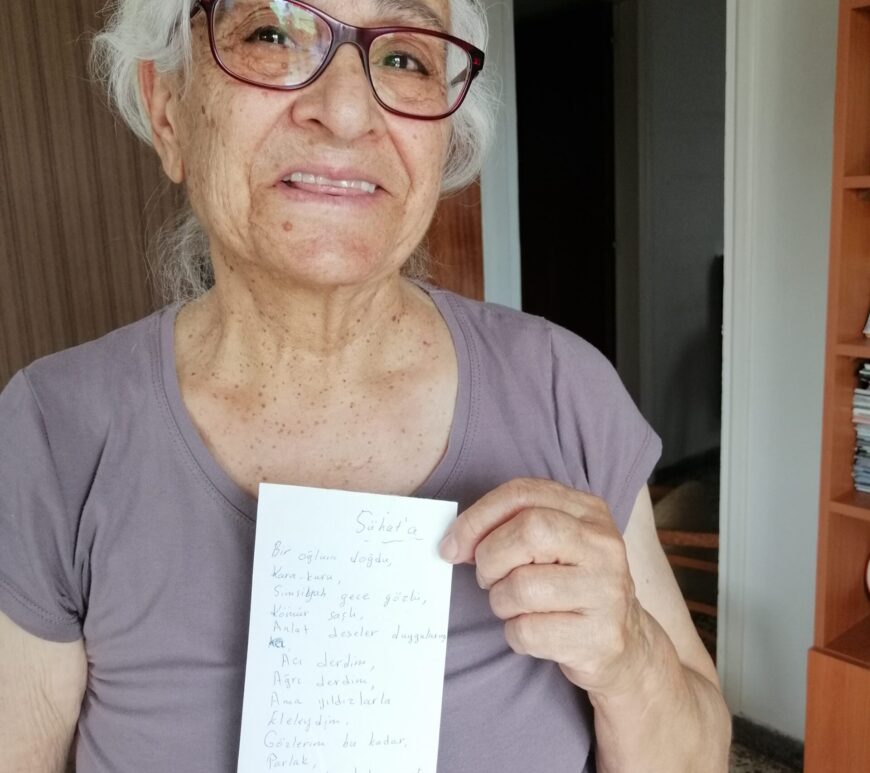 Sühat'a
Bir oğlum doğdu,
Kara-kuru,
Simsiyah gece gözlü,
Kömür saçlı,
Anlat deseler duygularını
Acı derdim,
Ağrı derdim,
Ama yıldızlarla
Eleleydim.
Gözlerim bu kadar,
Parlak,